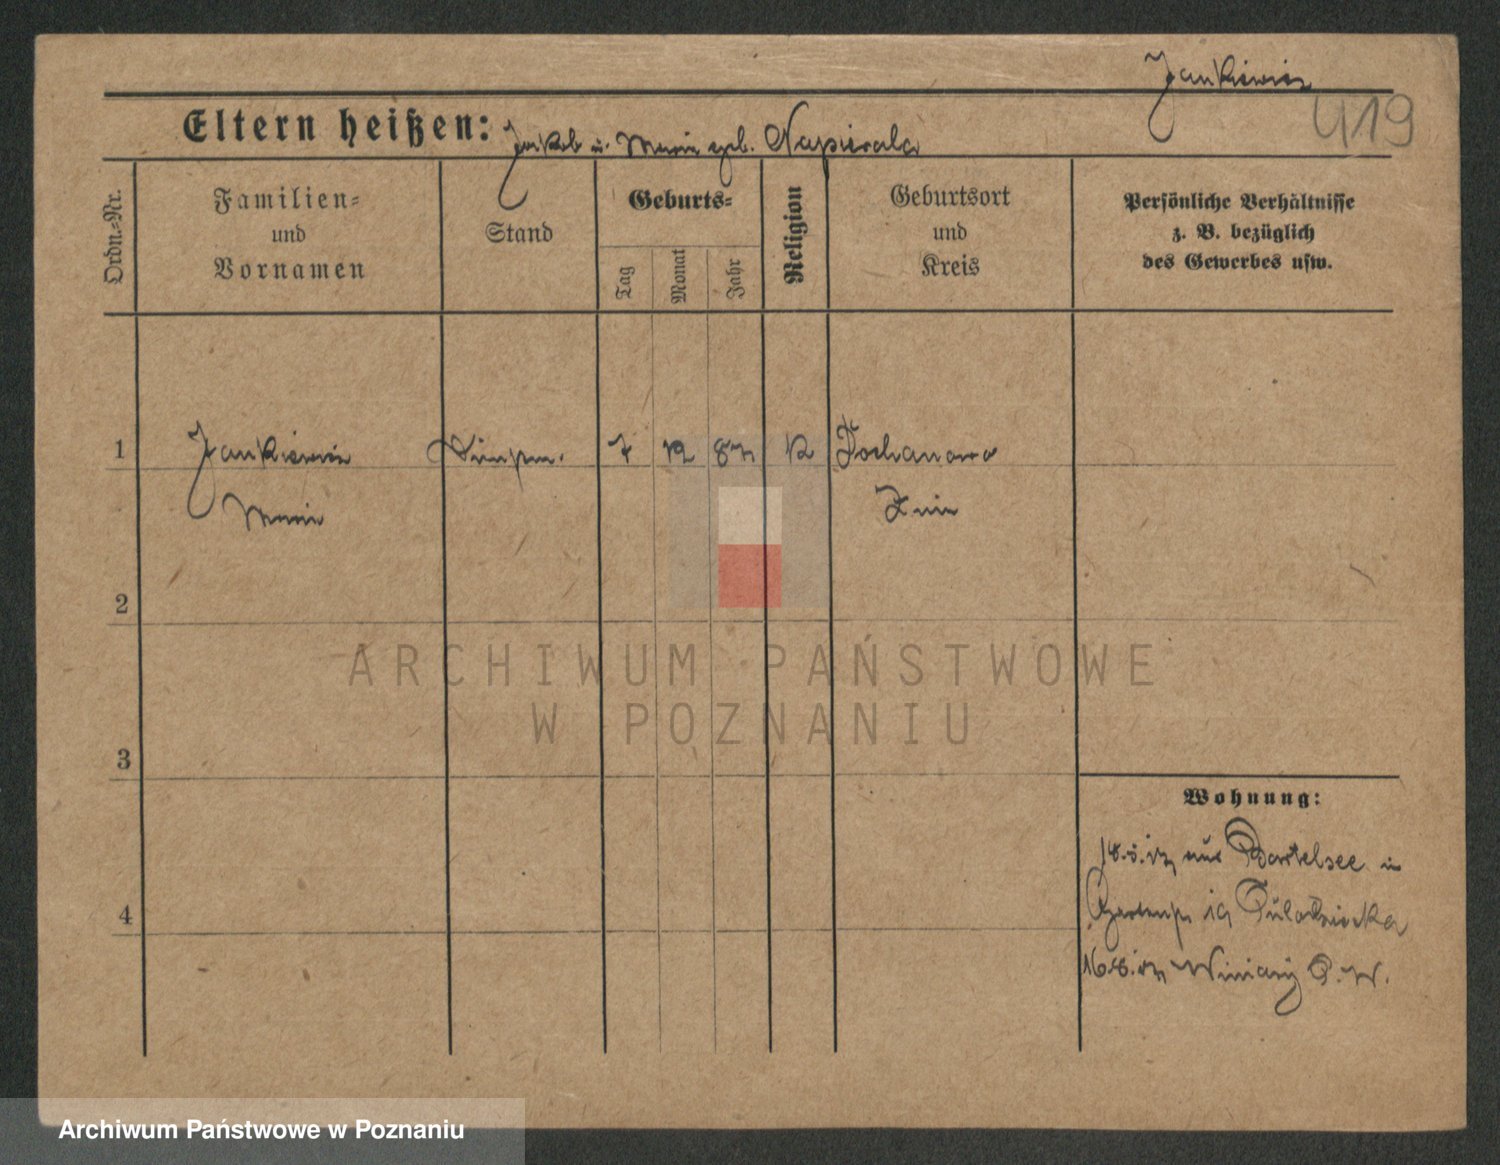 Jankiewicz
419
Eltern heißen: Jakob u. Marie geb. Napierala
Ordn.=Nr.
Familien=
und
Vornamen
Stand
Geburts=
Tag
Monat
Jahr
Religion
Geburtsort
und
Kreis
Persönliche Verhältnisse
z. B. bezüglich
des Gewerbes usw.
1 Jankiewicz 7 12 87 K Tochanowo
Marie Znin
2
ARCHIWUM PAŃSTWOWE
W POZNANIU
3
Wohnung:
aus Bartelsee in
4
Winiary P. W.
Archiwum Państwowe w Poznaniu